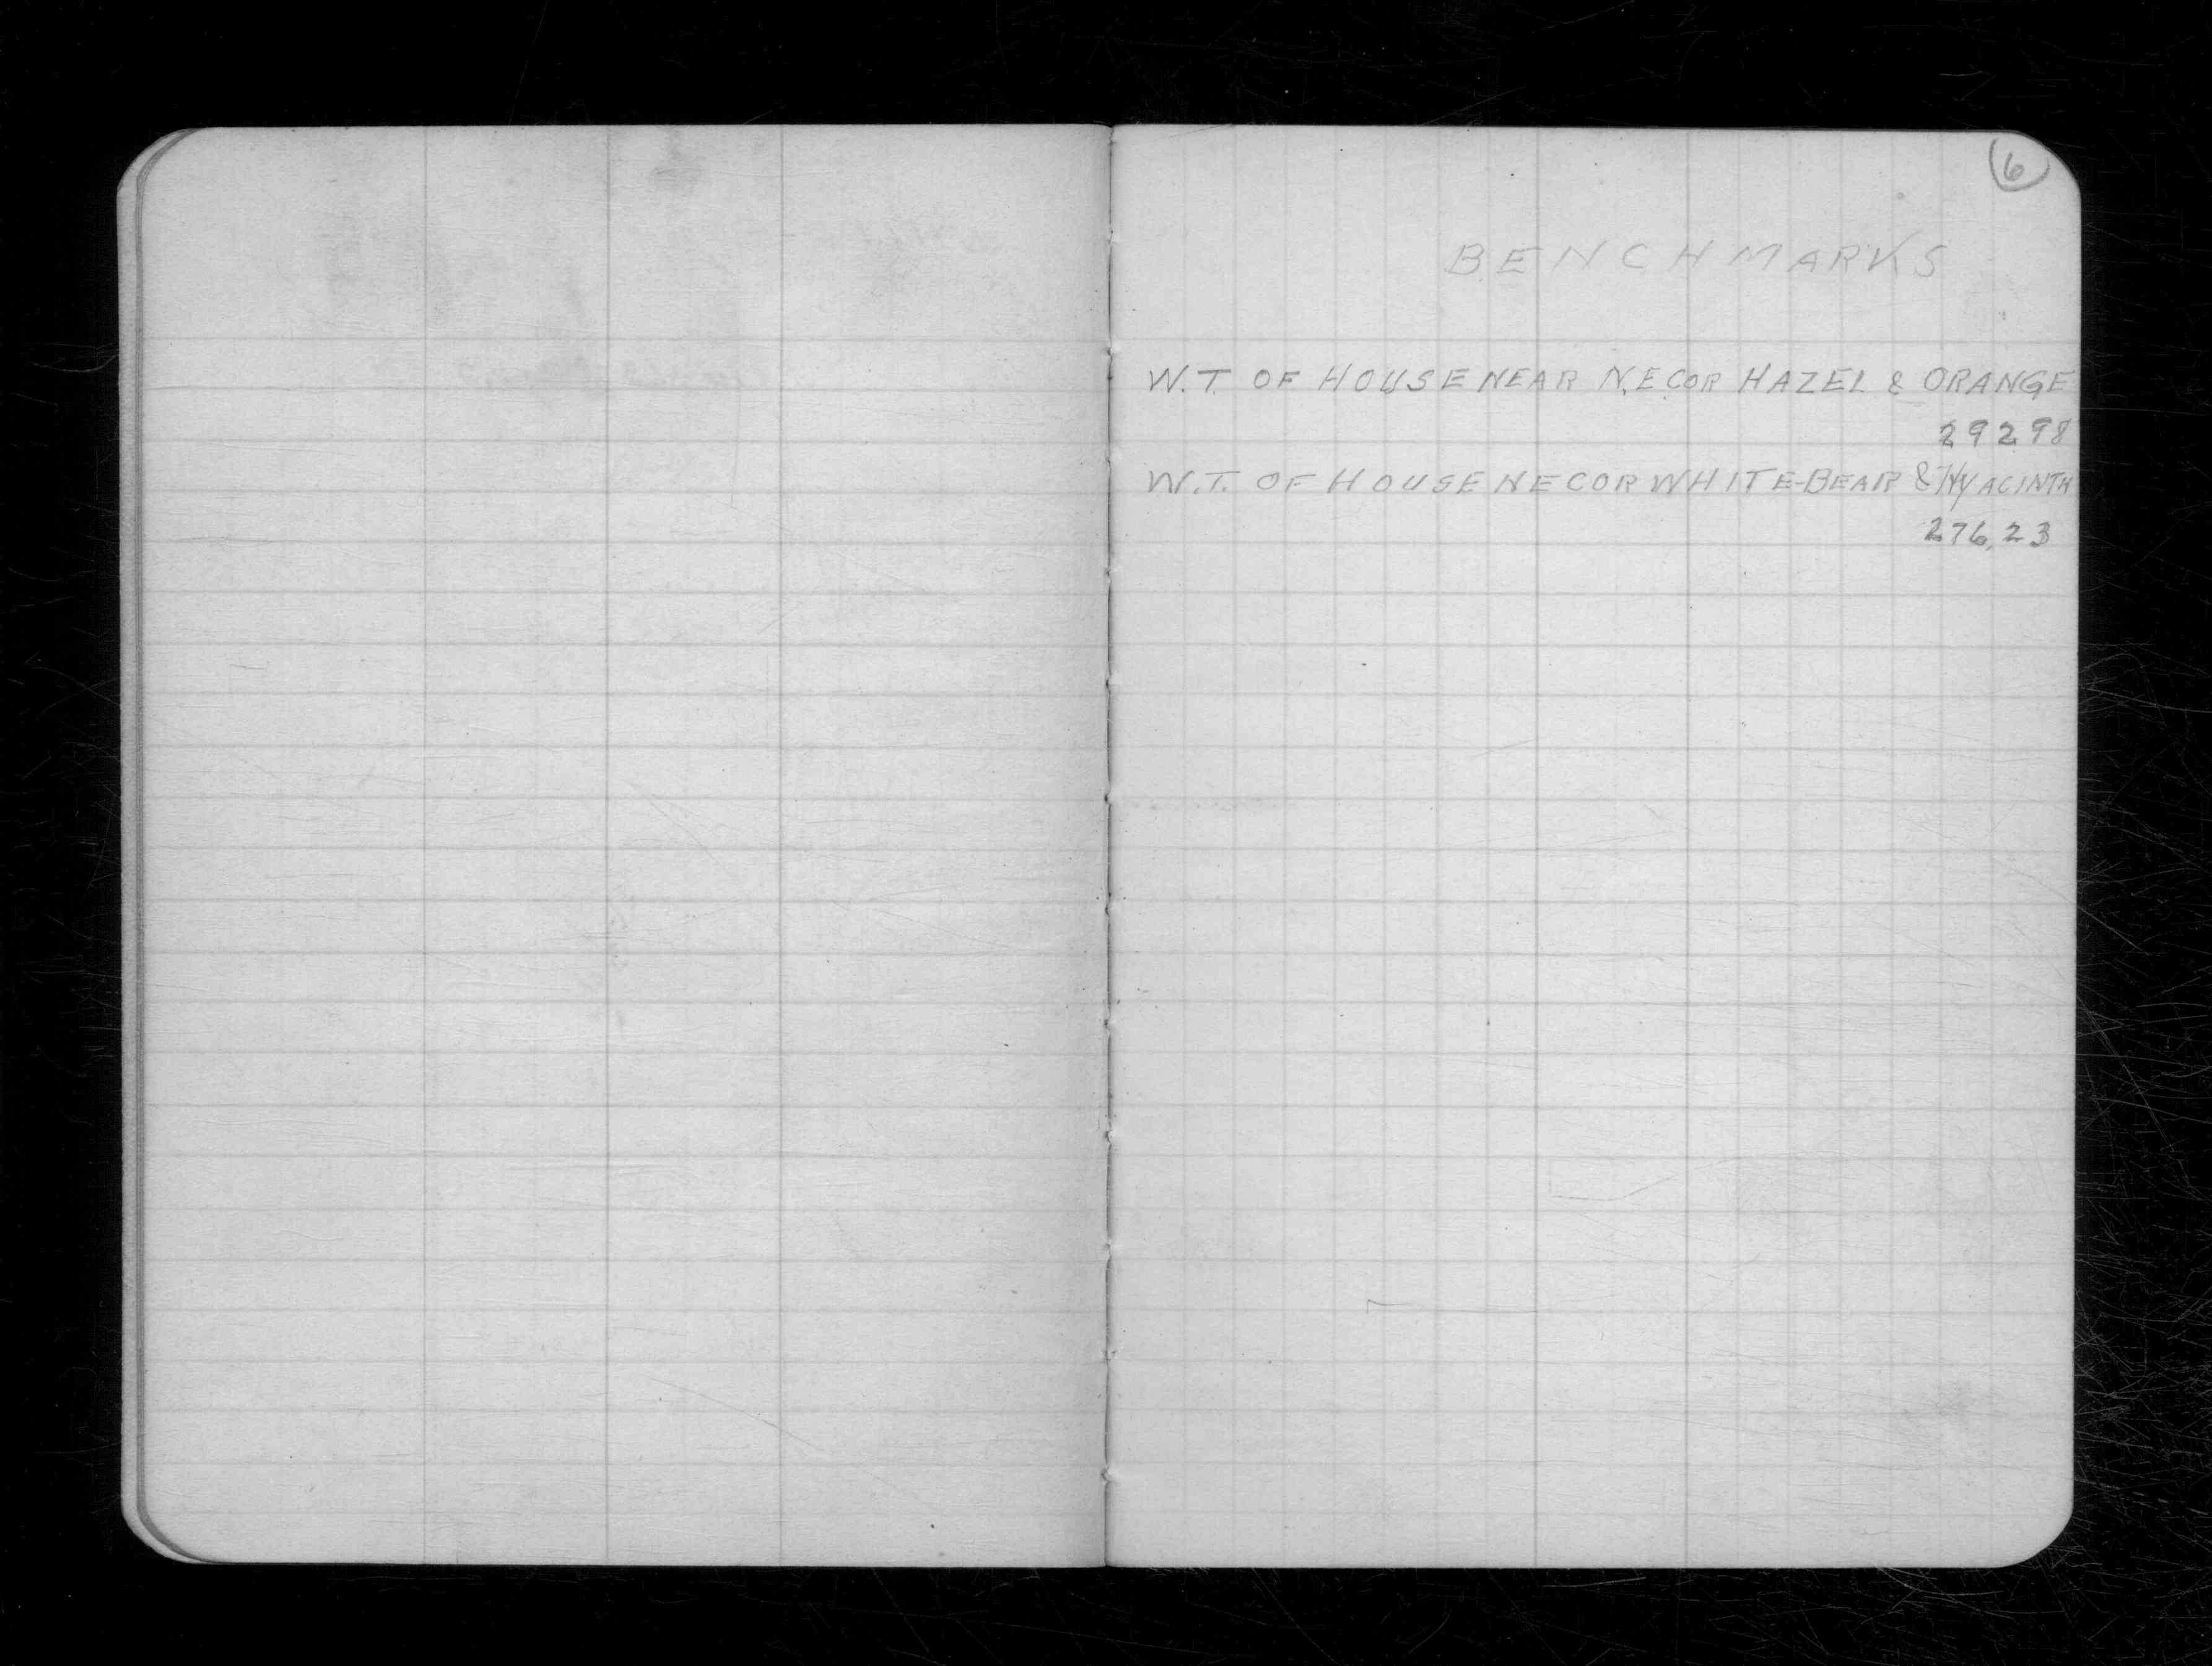 6
BENCHMARKS
W.T. OF HOUSE NEAR N.E. COR HAZEL & ORANGE
29298
W.T. OF HOUSE NE COR WHITE-BEAR & HYACINTH
276.23